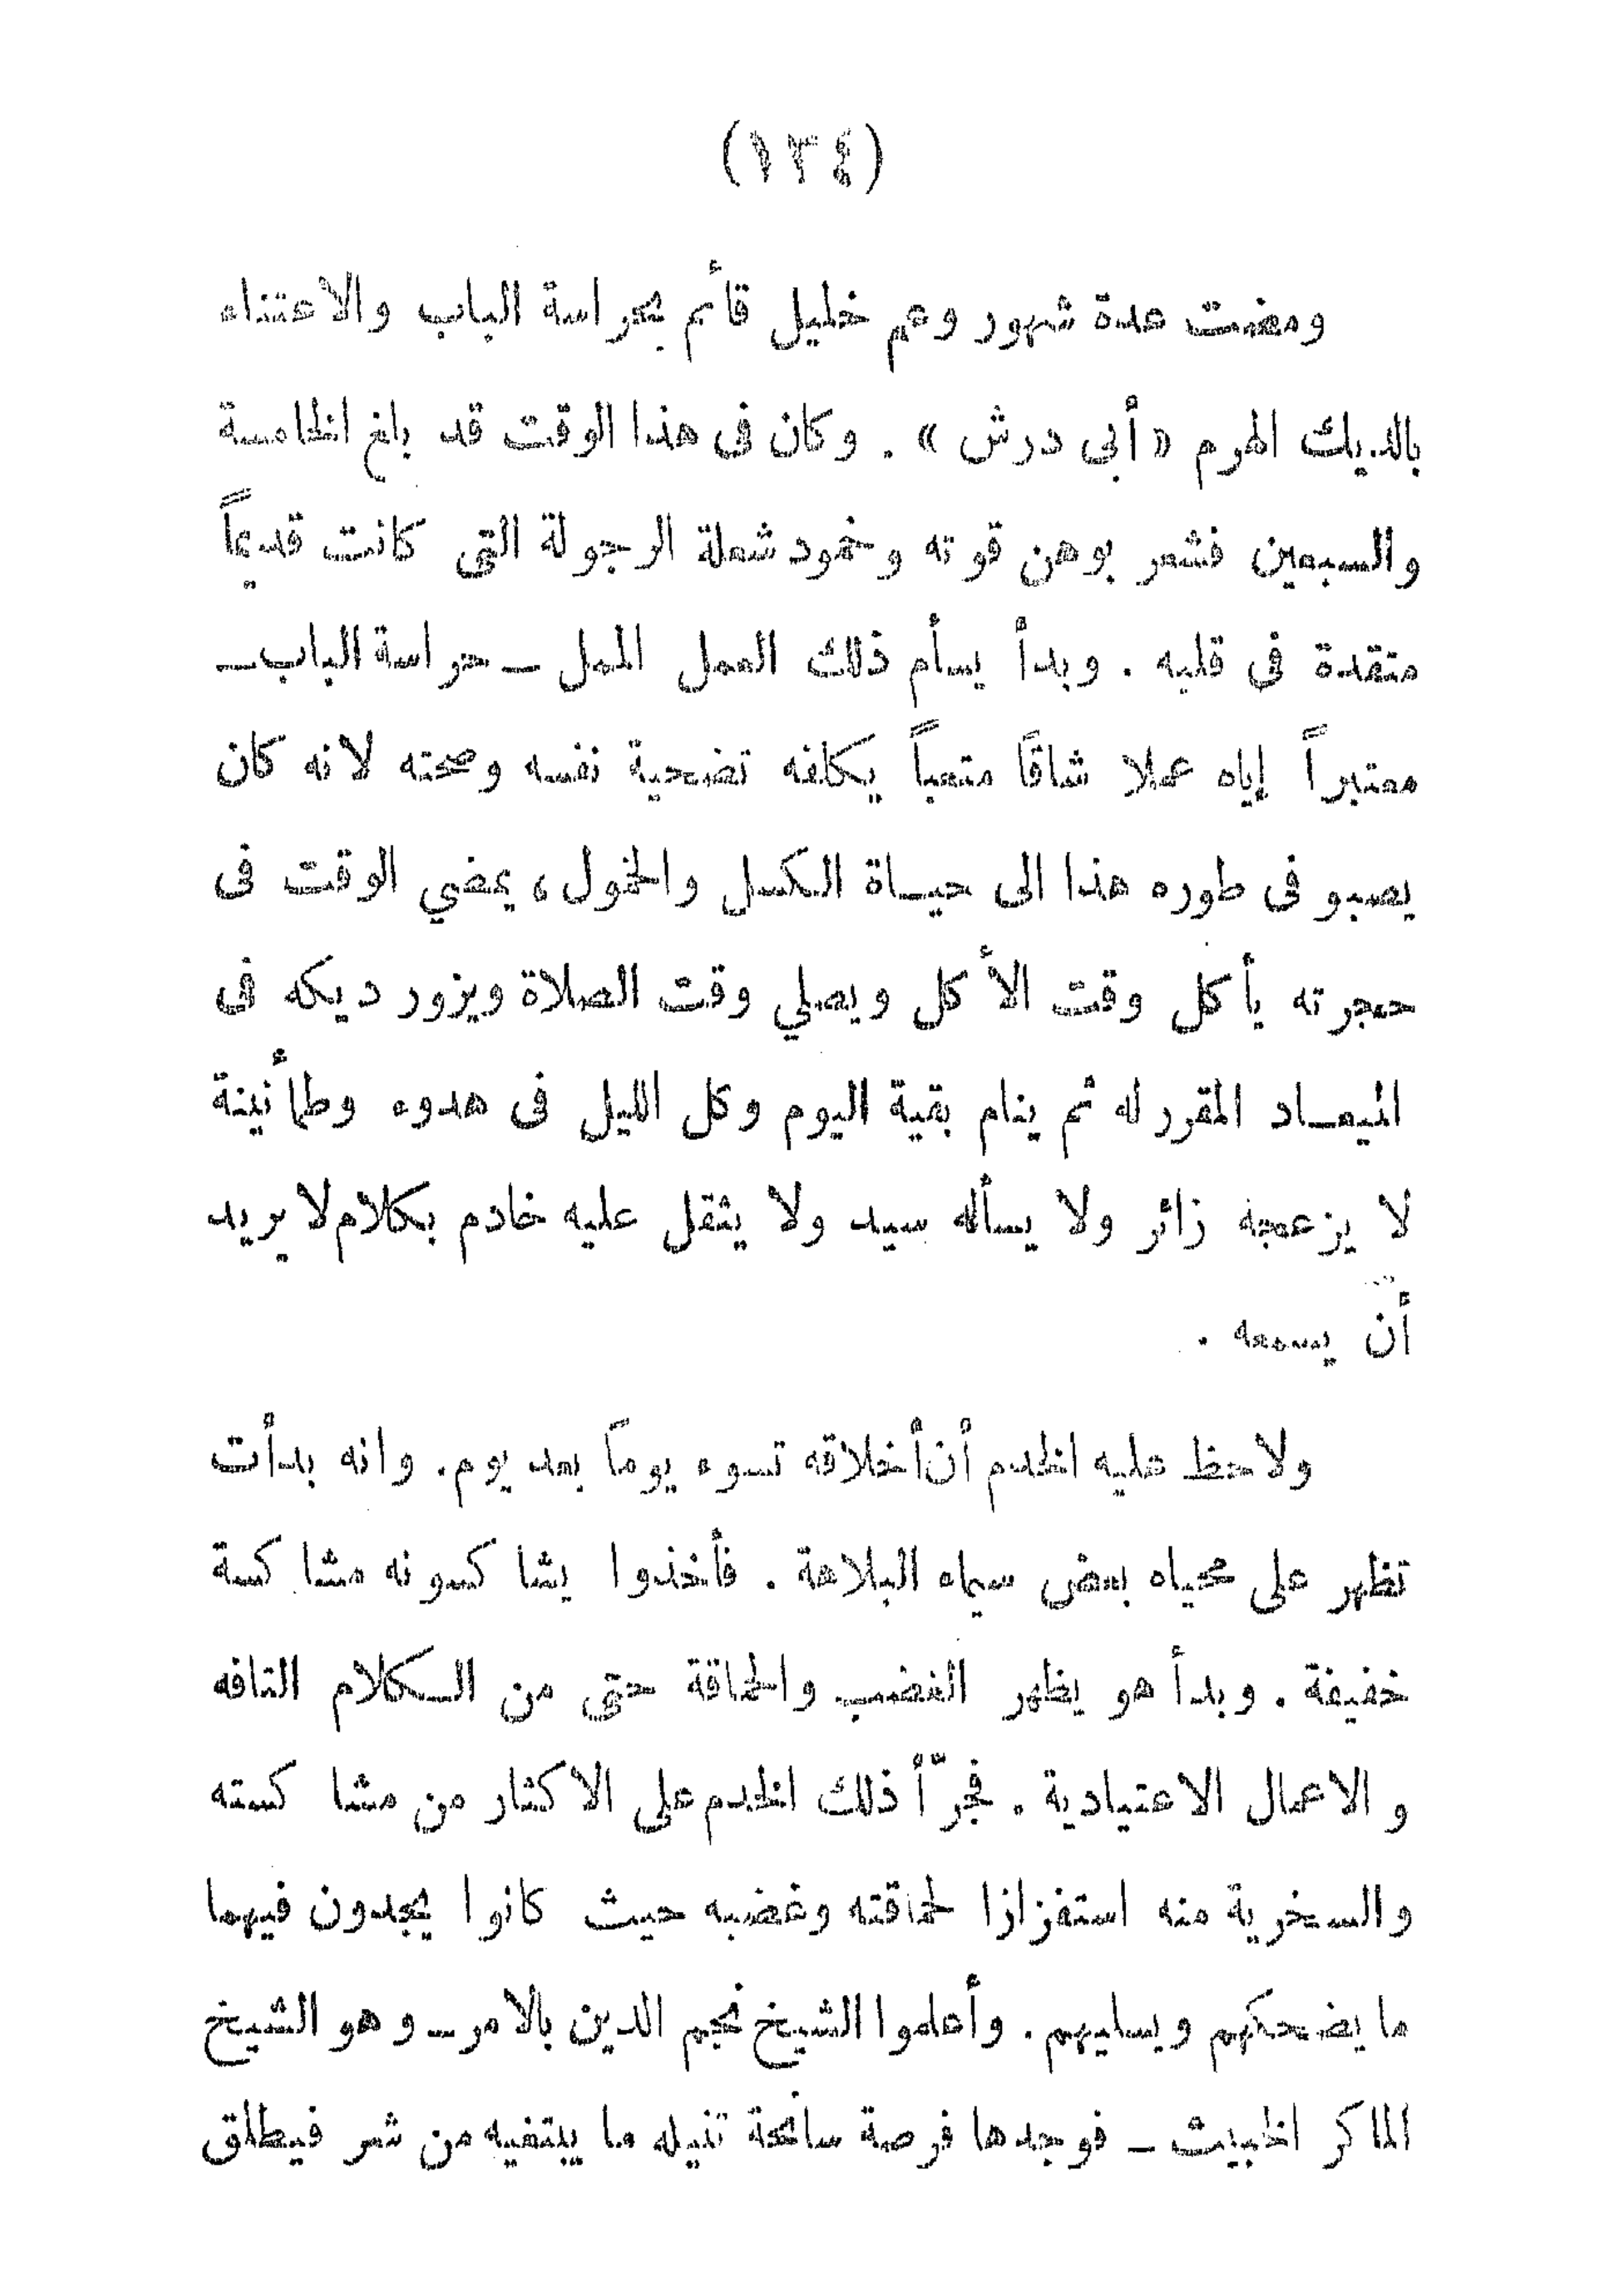 (١٣٤)
ومضت عدة شهور وعم خليل قائم بحراسة الباب والاعتناء
بالديك الهرم « أبى درش » . وكان فى هذا الوقت قد بلغ الخامسة
والسبعين فشعر بوهن قوته وخمود شعلة الرجولة التى كانت قديماً
متقدة فى قلبه . وبدأ يسأم ذلك العمل الممل ــ حراسة الباب ــ
معتبراً إياه عملا شاقاً متعباً يكلفه تضحية نفسه وصحته لانه كان
يصبو فى طوره هذا الى حياة الكسل والخمول ، يمضي الوقت فى
حجرته يأكل وقت الأكل ويصلي وقت الصلاة ويزور ديكه فى
الميعاد المقرر له ثم ينام بقية اليوم وكل الليل فى هدوء وطمأنينة
لا يزعجه زائر ولا يسأله سيد ولا يثقل عليه خادم بكلام لا يريد
أن يسمعه .
ولاحظ عليه الخدم أن أخلاقه تسوء يوماً بعد يوم . وانه بدأت
تظهر على محياه بعض سيماء البلاهة . فأخذوا يشاكسونه مشاكسة
خفيفة . وبدأ هو يظهر الغضب والحماقة حتى من الكلام التافه
والاعمال الاعتيادية . فجرّأ ذلك الخدم على الاكثار من مشاكسته
والسخرية منه استفزازا لحماقته وغضبه حيث كانوا يجدون فيهما
ما يضحكهم ويسليهم . وأعلموا الشيخ نجم الدين بالامر ــ وهو الشيخ
الماكر الخبيث ــ فوجدها فرصة سانحة تنيله ما يبتغيه من شر فيطلق